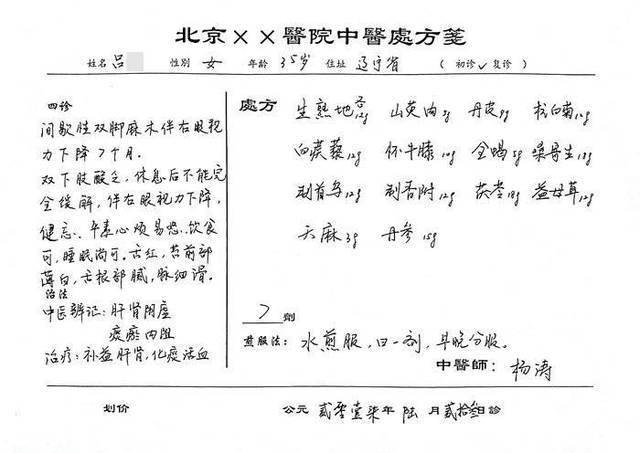 北京××醫院中醫處方箋
姓名 吕 性別 女 年龄 35岁 住址 辽宁省 ( 初诊✓复诊 )
四诊
间歇性双脚麻木伴右眼视
力下降7个月.
双下肢酸乏,休息后不能完
全缓解,伴右眼视力下降,
健忘、平素心烦易怒.饮食
可,睡眠尚可.舌红,苔前部
薄白,舌根部腻,脉细滑.
治法
中医辨证:肝肾阴虚
痰瘀内阻
治疗:补益肝肾,化痰活血
處方
生熟地各12g 山萸肉 丹皮9g 杭白菊12g
白蒺藜12g 怀牛膝10g 全蝎5g 桑寄生
制首乌12g 制香附12g 茯苓 益母草12g
天麻3g 丹参15g
7 劑
煎服法: 水煎服,日一剂,早晚分服。
中醫師: 杨涛
划价
公元 贰零壹柒年 陆 月 贰拾叁日診